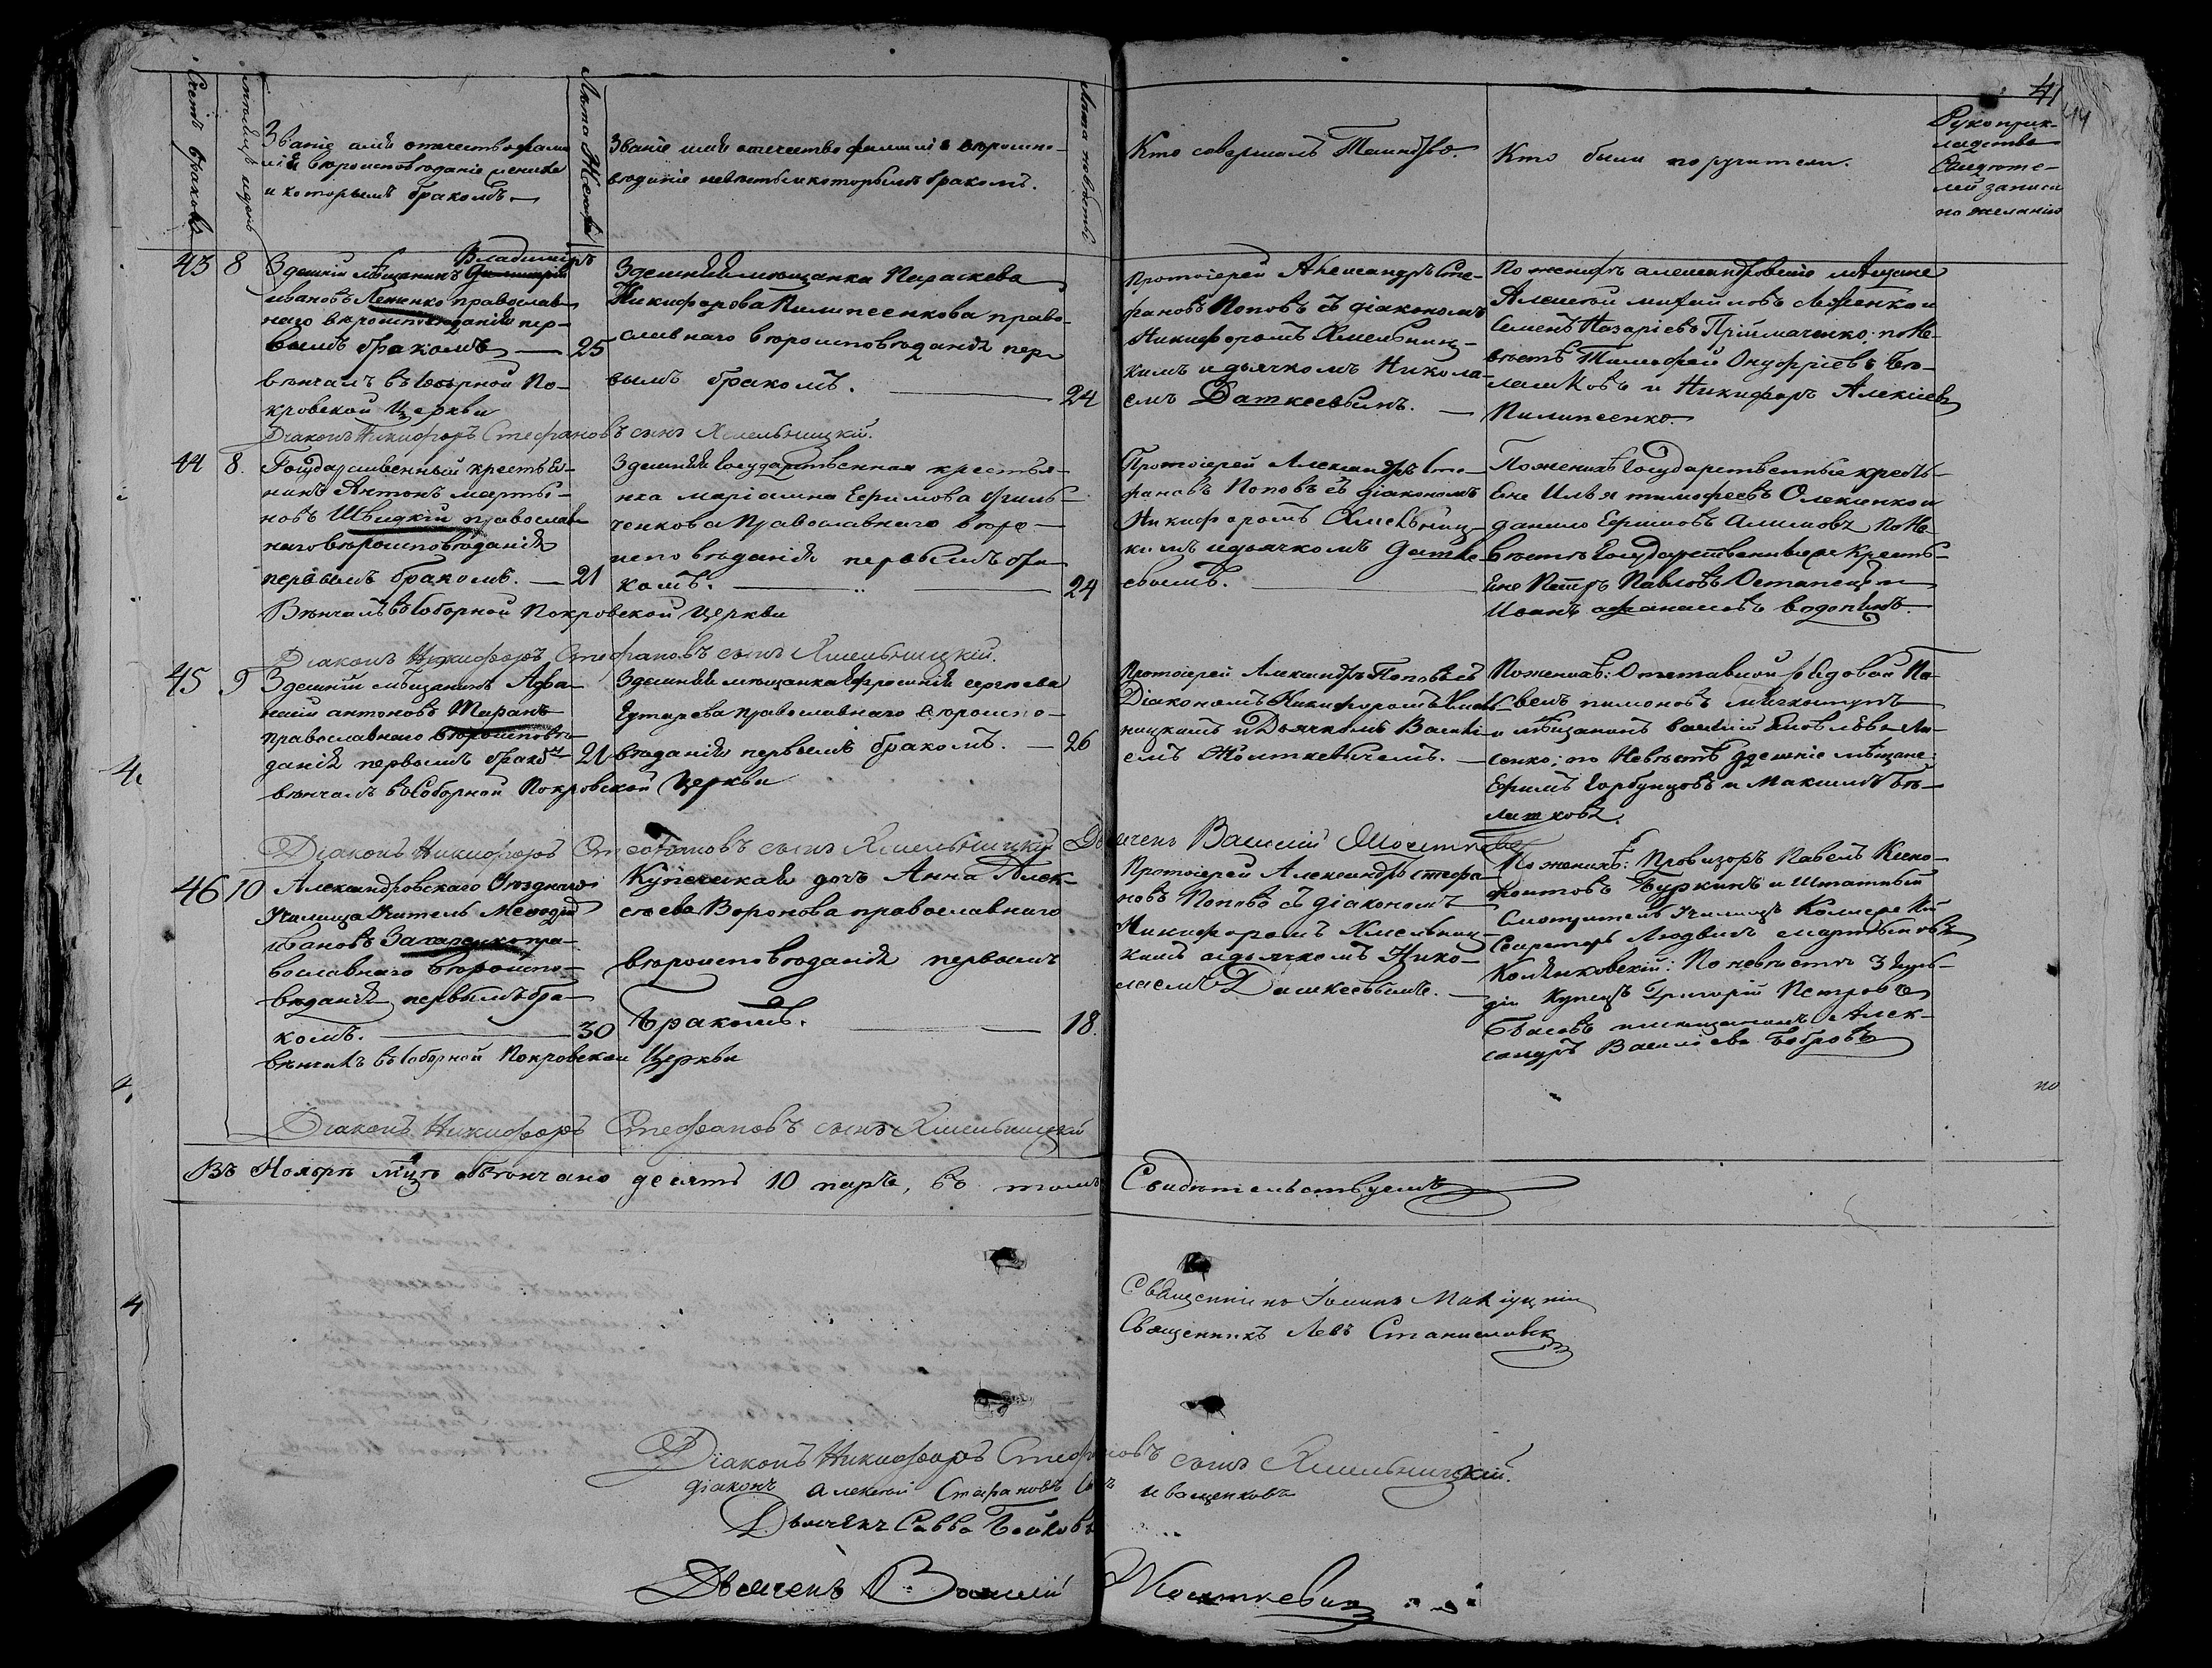 41
44
Счетъ браковъ
Мѣсяцъ и день
Званіе имя отечество фами-
лія вѣроисповѣданіе жениха
и которымъ бракомъ.
Лѣта Жениха
Званіе имя отечество фамилія вѣроиспо-
вѣданіе невѣсты и которымъ бракомъ.
Лѣта невѣсты
Кто совершалъ Таинство.
Кто были поручители.
Рукоприк-
ладство
Свидѣте-
лей записи
по желанію
43
8
Владимиръ
Здешній мѣщанинъ Димитрій
Ивановъ Леженко православ-
наго вѣроисповѣданія пер-
вымъ бракомъ — 25
вѣнчалъ въ Соборной По-
кровской Церкви
Здешняя мѣщанка Параскева
Никифорова Пилипсенкова право-
славнаго вѣроисповѣданія пер-
вымъ бракомъ. — 24
Протоіерей Александръ Сте-
фановъ Поповъ съ діакономъ
Никифоромъ Хмельниц-
кимъ и дьячкомъ Никола-
емъ Дашкеевымъ.
По женихѣ александровскіе мѣщане
Алексѣй Михайловъ Леженко и
Семенъ Назаріевъ Пріймаченко; по Не-
вѣстѣ Тимофей Онуфріевъ Бѣ-
лашковъ и Никифоръ Алексіевъ
Пилипсенко.
Діаконъ Никифоръ Стефановъ сынъ Хмельницкій.
44
8.
Государственный крестья-
нинъ Антонъ марты-
новъ Швидкій православ-
наго вѣроисповѣданія
первымъ бракомъ. — 21
Вѣнчалъ въ Соборной Покровской Церкви
Здешняя Государственная крестья-
нка Маріамна Ефимова Филь-
ченкова Православнаго вѣро-
исповѣданія первымъ бра-
комъ. — 24
Протоіерей Александръ Сте-
фановъ Поповъ съ діакономъ
Никифоромъ Хмельниц-
кимъ и дьячкомъ Дашке-
евымъ.
По женихѣ Государственные кресть-
яне Илья тимофеевъ Олексенко и
данило Ефимовъ Алимовъ По Не-
вѣстѣ Государственные Кресть-
яне Петръ Павловъ Остапец и
Иванъ афанасовъ водопянъ.
Діаконъ Никифоръ Стефановъ сынъ Хмельницкій.
45
9
Здешній мѣщанинъ Афа-
насій антоновъ Таранъ
православнаго вѣроисповѣ-
данія первымъ браком — 21
вѣнчалъ въ Соборной Покровской Церкви
Здешняя мѣщанка Ефросинія сергѣева
Гутарева православнаго вѣроиспо-
вѣданія первымъ бракомъ. — 26
Протоіерей Александръ Поповъ съ
Діакономъ Никифоромъ Хмель-
ницкимъ и Дьячкомъ Васи-
емъ Жосткевичемъ.
По жених: Отставной рядовой Па-
велъ пимоновъ
и мѣщанинъ василій Яковлевъ Ли-
сенко; по Невѣстѣ здешніе мѣщане:
Ефимъ Горбунцовъ и Максимъ Бѣ-
лашковъ.
Діаконъ Никифоръ Стефановъ сынъ Хмельницкій Дьячекъ Василій Жосткевич
46
10
Александровскаго Уѣзднаго
Училища Учитель Мефодій
Ивановъ Захаренко пра-
вославнаго вѣроиспо-
вѣданія первымъ бра-
комъ. — 30
вѣнчалъ въ Соборной Покровской Церкви
Купеческая дочь Анна Алек-
сѣева Воронова православнаго
вѣроисповѣданія первымъ
Бракомъ. — 18.
Протоіерей Александръ Стефа-
новъ Поповъ съ діакономъ
Никифоромъ Хмельниц-
кимъ и дьячкомъ Нико-
лаемъ Дашкеевымъ.
По женихѣ: Провизоръ Павелъ Ксено-
фонтовъ Буркинъ и Штатный
Смотритель Училищъ Коллежскій
Секретарь Людвигъ мартыновъ
Колянковскій: По невѣсте 3 Гиль-
діи Купецъ Григорій Петровъ
Бѣлсовъ и мѣщанинъ Алек-
сандръ Васильевъ Бобровъ
Діаконъ Никифоръ Стефановъ сынъ Хмельницкій
Въ Ноябрѣ мцѣ обвѣнчано десять 10 паръ, въ томъ Свидѣтельствуемъ
Священникъ Іоаннъ
Священникъ Левъ Станиславск
Діаконъ Никифоръ Стефановъ сынъ Хмельницкій.
діаконъ алексѣй Стефановъ Сынъ Иващенковъ
Дьячекъ Савва Бойковъ
Дьячекъ Василій Жосткевич
по